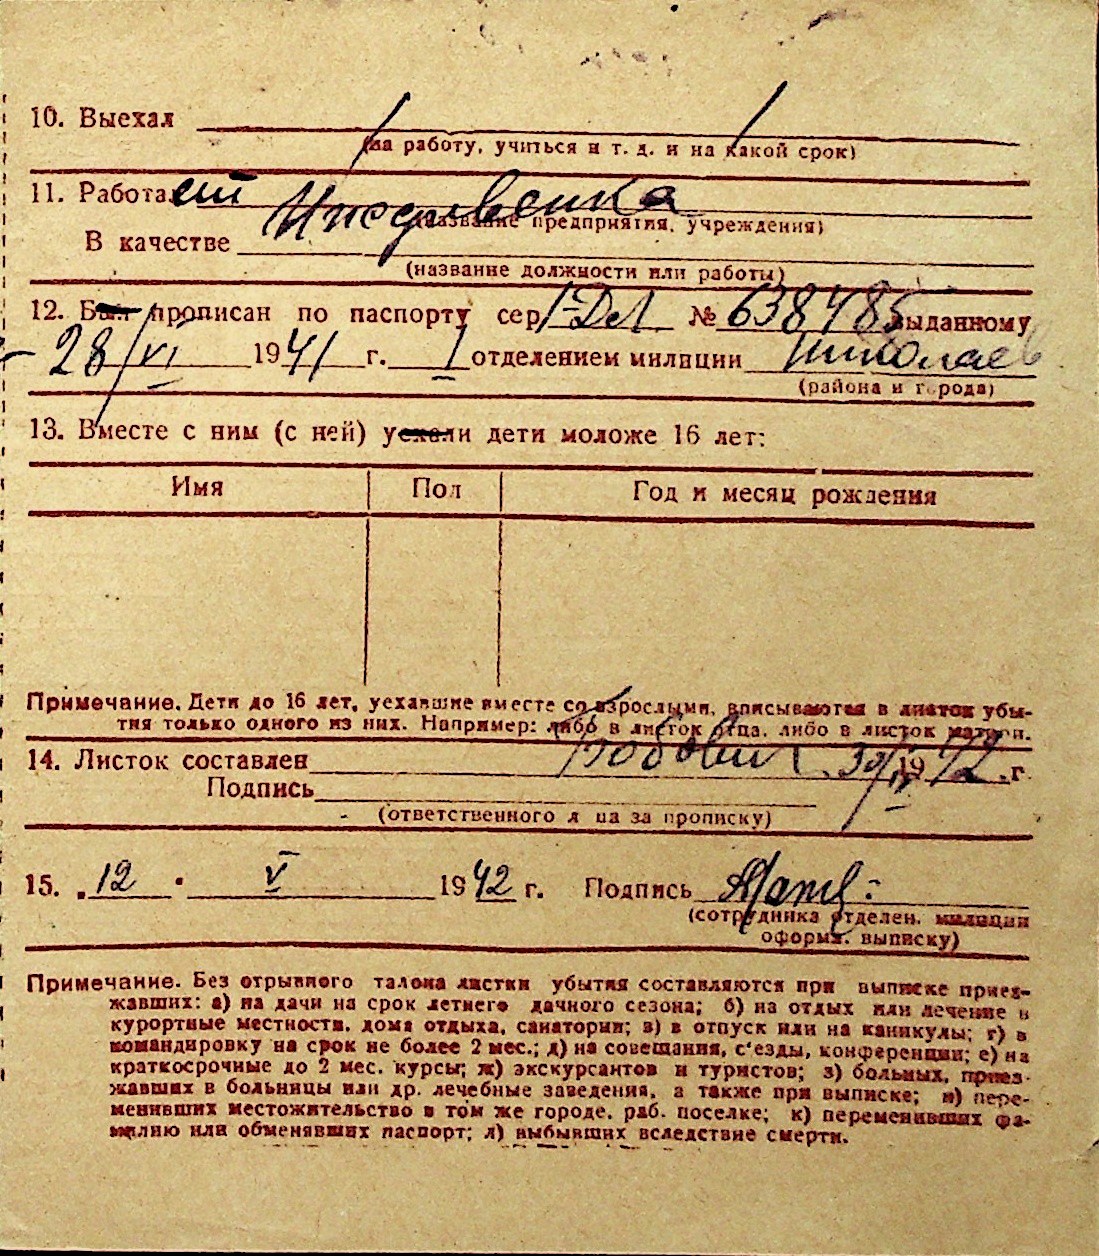 10. Выехал
(на работу, учиться и т. д. и на какой срок)
11. Работает Иждивенка
(название предприятия, учреждения)
В качестве
(название должности или работы)
12. Был прописан по паспорту сер. № 638485 выданному
28/VI 1941 г. I отделением милиции Николаев
(района и города)
13. Вместе с ним (с ней) уехали дети моложе 16 лет:
Имя Пол Год и месяц рождения
Примечание. Дети до 16 лет, уехавшие вместе со взрослыми, вписываются в листок убы-
тия только одного из них. Например: либо в листок отца, либо в листок матери.
14. Листок составлен 30/IV 1942 г.
Подпись
(ответственного лица за прописку)
15. „12 " V 1942 г. Подпись
(сотрудника отделен. милиции
оформл. выписку)
Примечание. Без отрывного талона листки убытия составляются при выписке приез-
жавших: а) на дачи на срок летнего дачного сезона; б) на отдых или лечение в
курортные местности, дома отдыха, санатории; в) в отпуск или на каникулы; г) в
командировку на срок не более 2 мес.; д) на совещания, с'езды, конференции; е) на
краткосрочные до 2 мес. курсы; ж) экскурсантов и туристов; з) больных, приез-
жавших в больницы или др. лечебные заведения, а также при выписке; и) пере-
менивших местожительство в том же городе, раб. поселке; к) переменивших фа-
милию или обменявших паспорт; л) выбывших вследствие смерти.